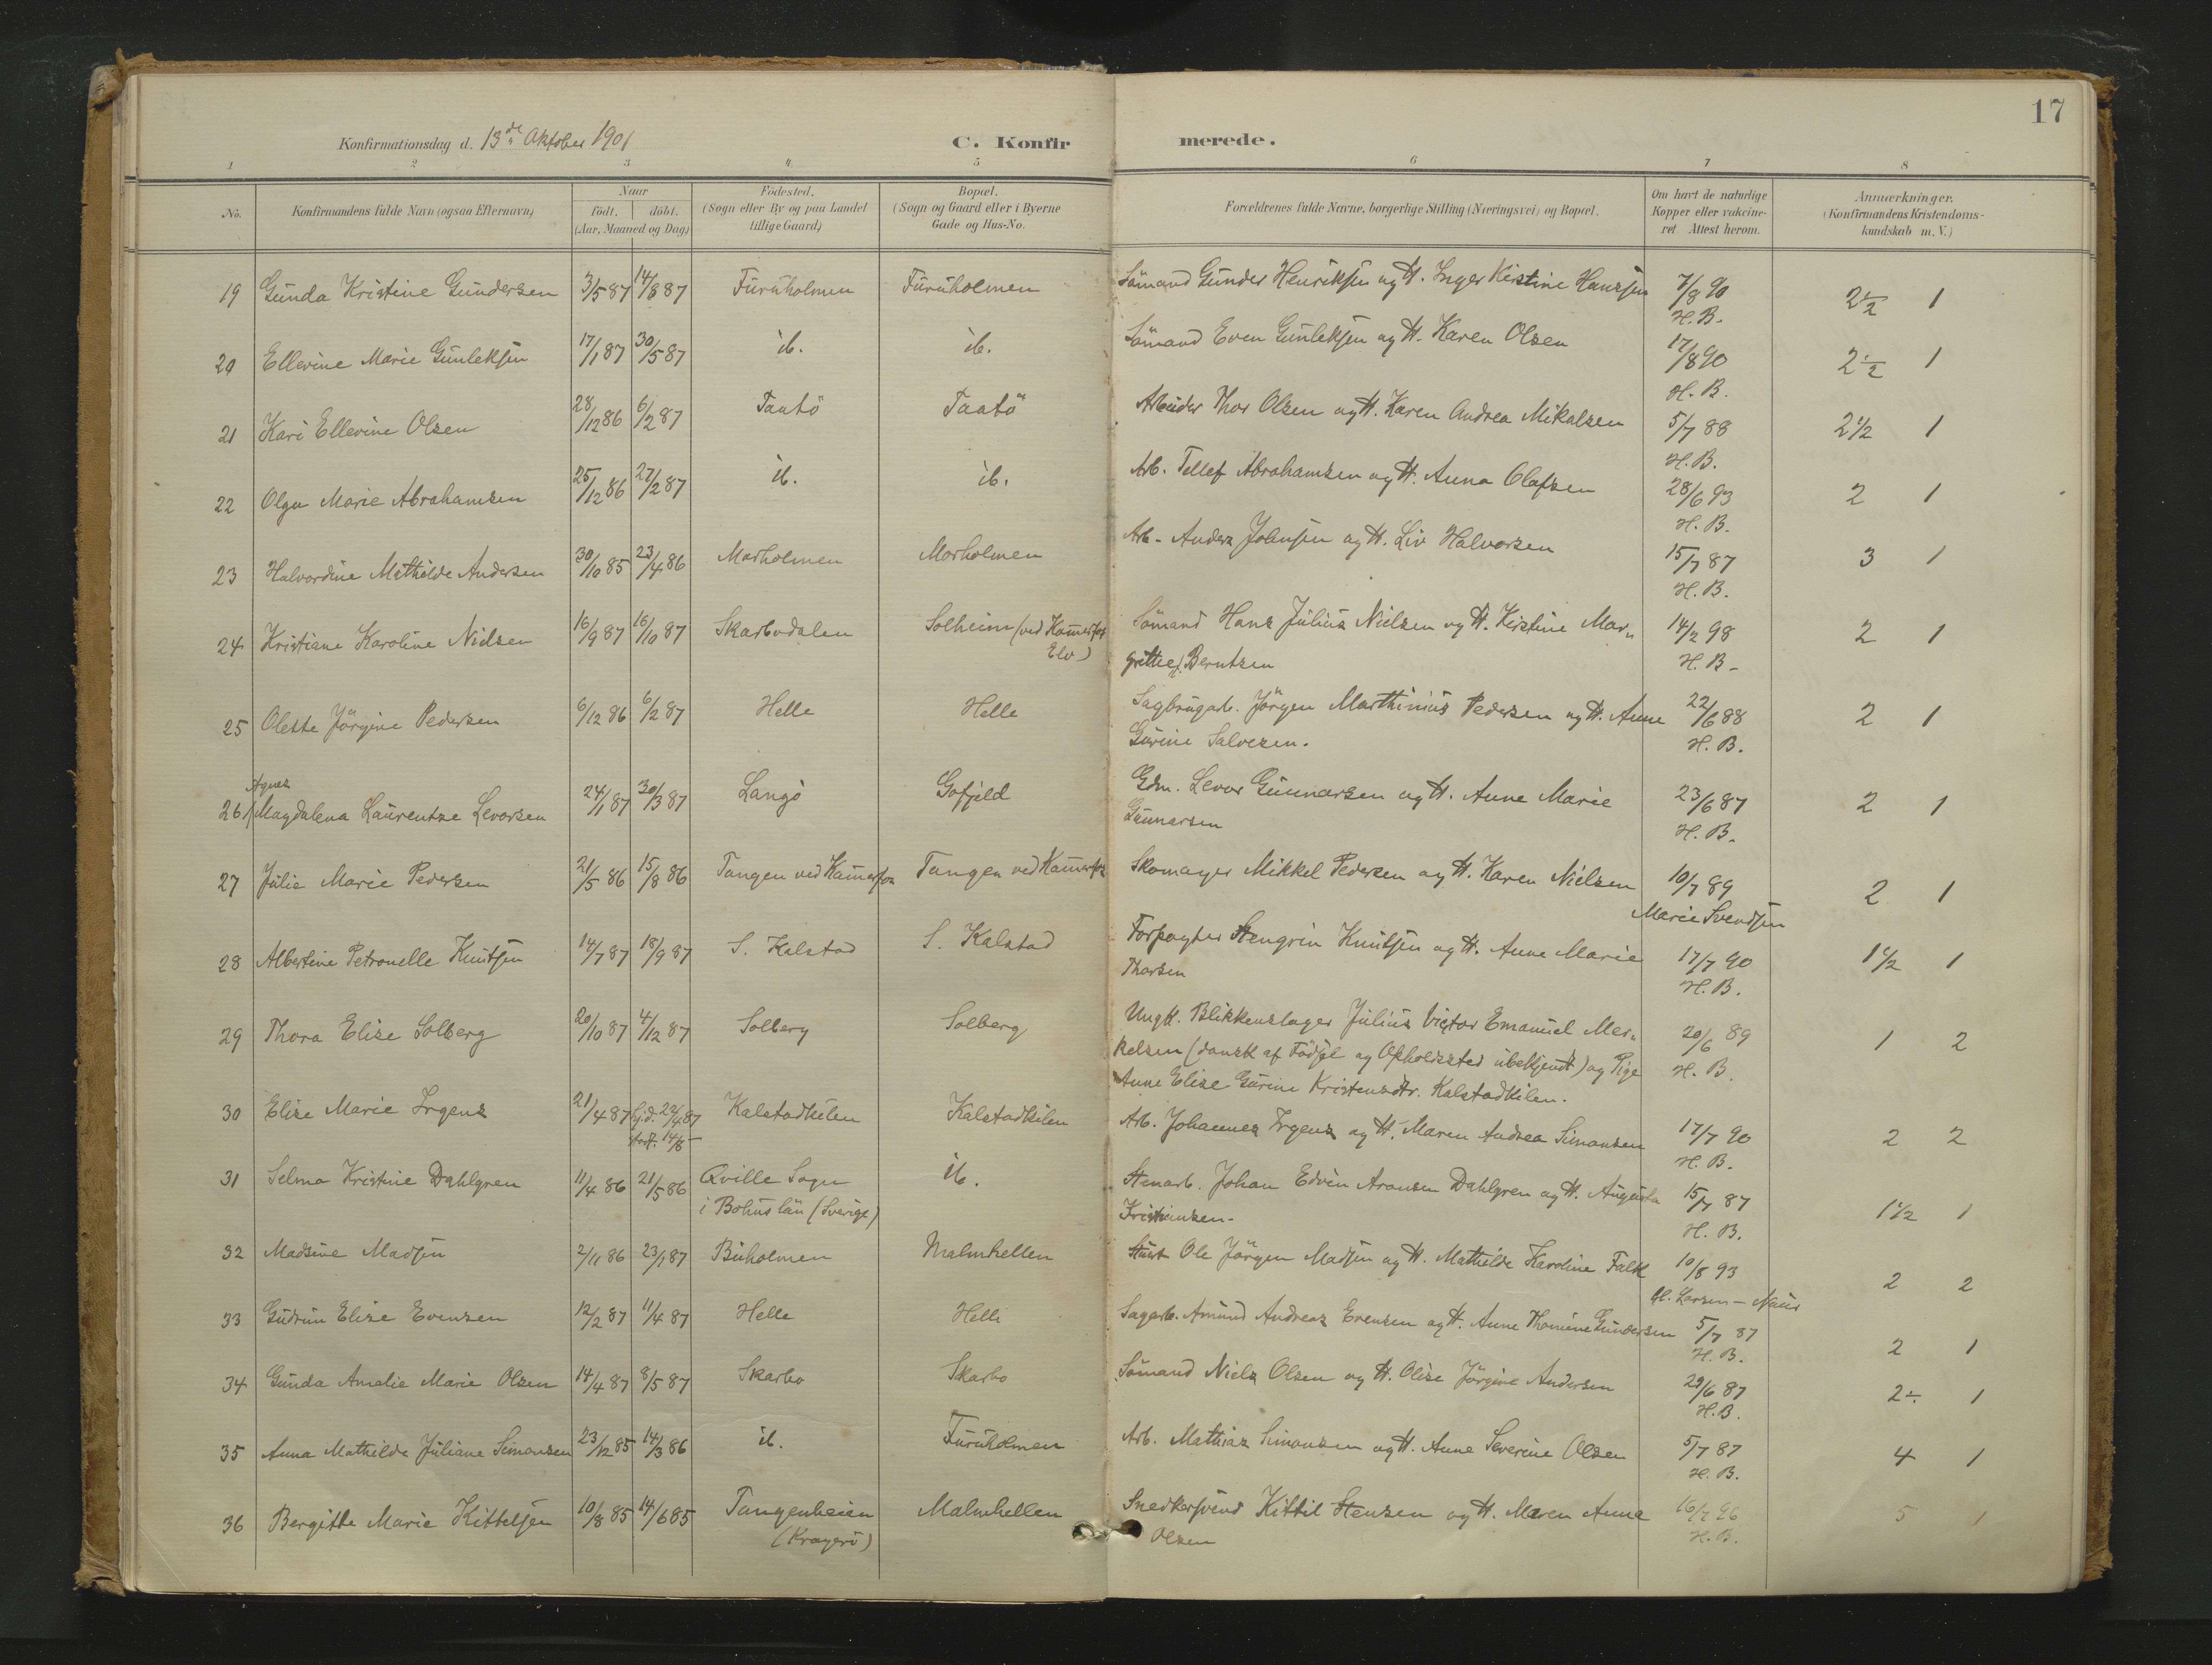 17
Konfirmationsdag d. 13de Oktober 1901
C. Konfirmerede.
1 2 3 4 5 6 7 8
No. Konfirmandens fulde Navn (ogsaa Efternavn) Naar födt. döbt. (Aar, Maaned og Dag) Födested. (Sogn eller By og paa Landet tillige Gaard) Bopæl. (Sogn og Gaard eller i Byerne Gade og Hus-No. Forældrenes fulde Navne, borgerlige Stilling (Næringsvei) og Bopæl. Om havt de naturlige Kopper eller vakcineret. Attest herom. Anmærkninger. (Konfirmandens Kristendomskundskab m. V.)
19 Gunda Kristine Gundersen 3/5 87 14/8 87 Furuholmen Furuholmen Sömand Gunder Henriksen og H. Inger Kirstine Hanssen 7/8 90 H. B. 2 1/2 1
20 Ellevine Marie Gunleksen 17/1 87 30/5 87 ib. ib. Sömand Even Gunleksen og H. Karen Olsen 17/8 90 H. B. 2 1/2 1
21 Kari Ellevine Olsen 28/12 86 6/2 87 Taatö Taatö Arbeider Thor Olsen og H. Karen Andrea Mikalsen 5/7 88 H. B. 2 1/2 1
22 Olga Marie Abrahamsen 25/12 86 27/2 87 ib. ib. Arb. Tellef Abrahamsen og H. Anna Olafsen 28/6 93 H. B. 2 1
23 Halvordine Mathilde Andersen 30/10 85 23/4 86 Morholmen Morholmen Arb. Anders Johnsen og H. Liv Halvorsen 15/7 87 H. B. 3 1
24 Kristiane Karoline Nielsen 16/9 87 16/10 87 Skarbodalen Solheim (ved Kammerfos Elv) Sömand Hans Julius Nielsen og H. Kirstine Mar„
grethe Berntsen 14/2 98 H. B. 2 1
25 Olette Jörgine Pedersen 6/12 86 6/2 87 Helle Helle Sagbrugarb. Jörgen Marthinius Pedersen og H. Anne
Gurine Salvesen. 22/6 88 H. B. 2 1
26 Agnes Magdalena Laurentze Levorsen 24/1 87 30/3 87 Langö Gofjeld Gdm. Levor Gunnarsen og H. Anne Marie
Gunnarsen 23/6 87 H. B. 2 1
27 Julie Marie Pedersen 21/5 86 15/8 86 Tangen ved Kammerfos Tangen ved Kammerfos Skomager Mikkel Pedersen og H. Karen Nielsen 10/7 89 Marie Svendsen 2 1
28 Albertine Petronelle Knutsen 14/7 87 18/9 87 S. Kalstad S. Kalstad Forpagter Stengrin Knutsen og H. Anne Marie
Thorsen 17/7 90 H. B. 1 1/2 1
29 Thora Elise Solberg 20/10 87 4/12 87 Solberg Solberg Ungk. Blikkenslager Julius Victor Emanuel Mer„
kelsen (dansk af Födsel og Opholdssted ubekjendt) og Pige
Anne Elise Gurine Kristensdtr. Kalstadkilen. 20/6 89 H. B. 1 2
30 Elise Marie Irgens 21/4 87 hj.d. 22/4 87 stadf. 14/8 Kalstadkilen Kalstadkilen Arb. Johannes Irgens og H. Maren Andrea Simonsen 17/7 90 H. B. 2 2
31 Selma Kristine Dahlgren 11/4 86 21/5 86 Qville Sogn i Bohuslän (Sverige) ib. Stenarb. Johan Edvin Aronsen Dahlgren og H. Augusta
Kristiansen. 15/7 87 H. B. 1 1/2 1
32 Madsine Madsen 2/11 86 23/1 87 Buholmen Malmhellen Ole Jörgen Madsen og H. Mathilde Karoline Falk 10/8 93 Larsen 2 2
33 Gudrun Elise Evensen 12/2 87 11/4 87 Helle Helle Sagarb. Amund Andreas Evensen og H. Anne Thomine Gundersen 5/7 87 H. B. 2 1
34 Gunda Amalie Marie Olsen 14/4 87 8/5 87 Skarbo Skarbo Sömand Niels Olsen og H. Olise Jörgine Andersen 29/6 87 H. B. 2 ÷ 1
35 Anna Mathilde Juliane Simonsen 23/12 85 14/3 86 ib. Furuholmen Arb. Mathias Simonsen og H. Anne Severine Olsen 5/7 87 H. B. 4 1
36 Bergitte Marie Kittelsen 10/8 85 14/6 85 Tangenheien (Kragerö) Malmhellen Snedkersvend Kittil Stensen og H. Maren Anne
Olsen 16/7 96 H. B. 5 1